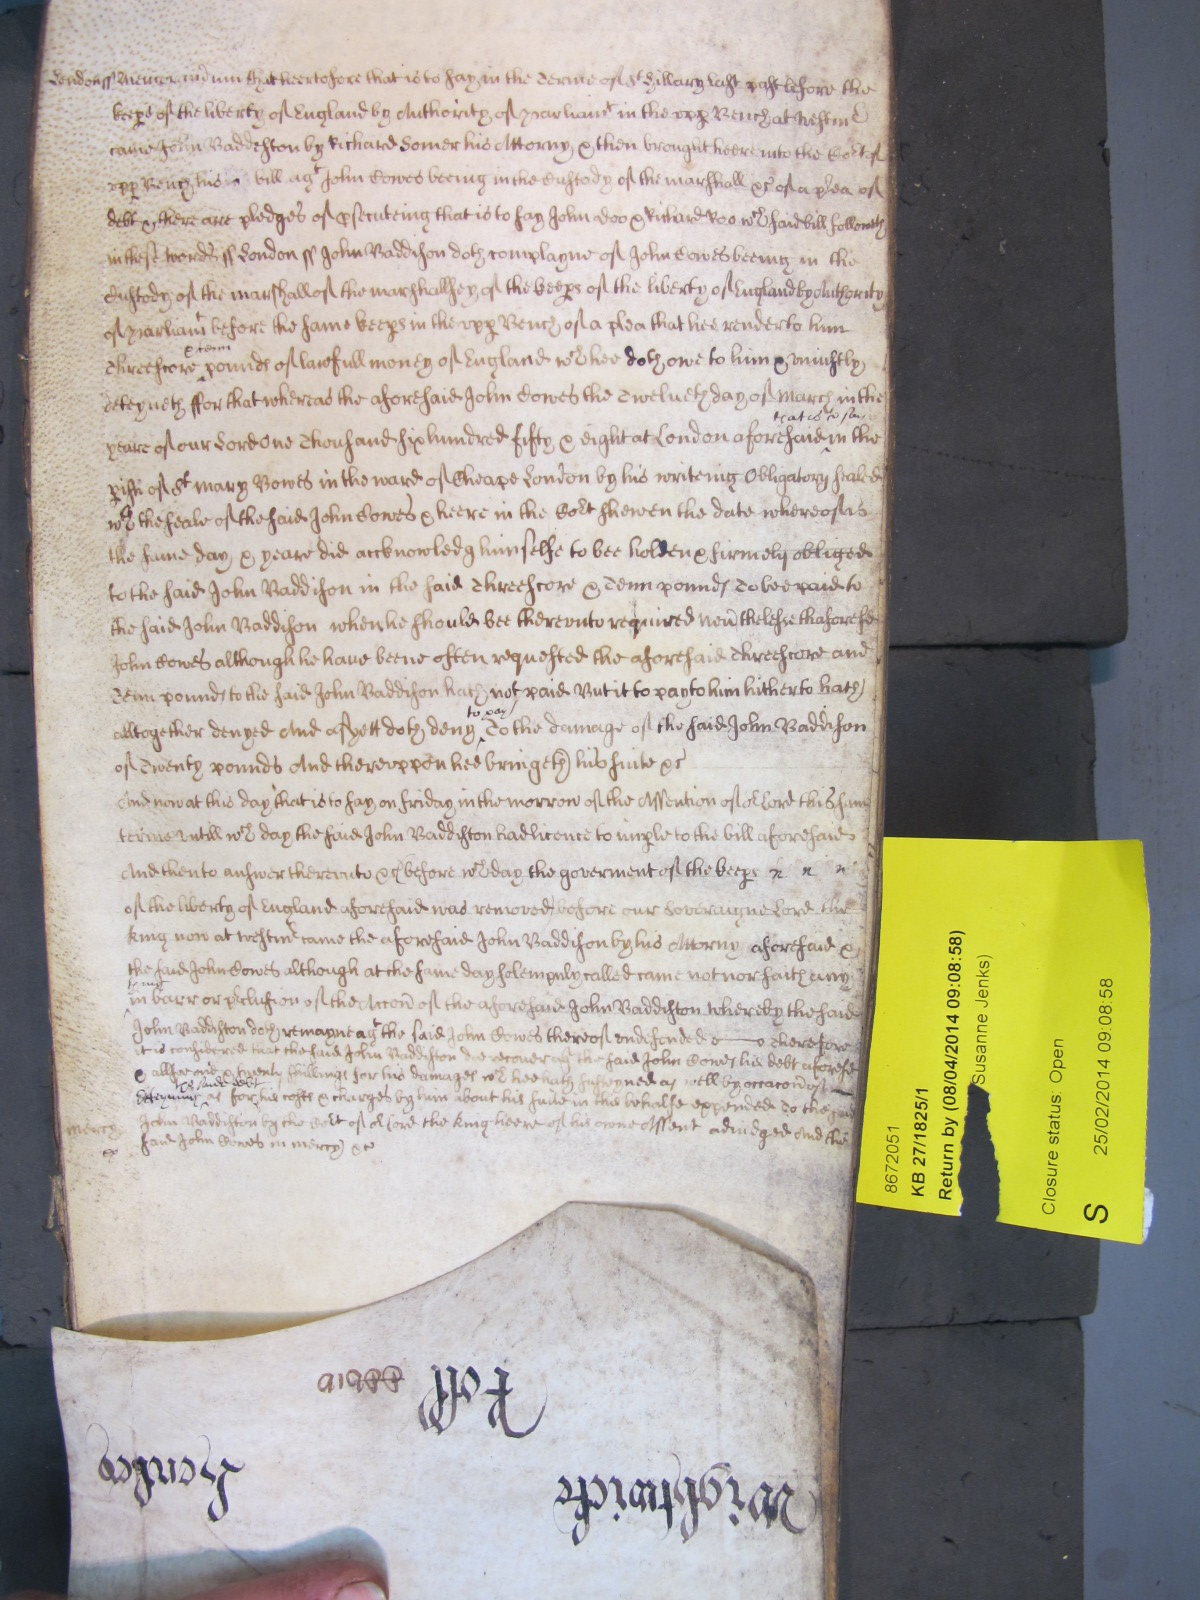 London ss Memorandum that heertofore that is to say in the Terme of St Hillary last past before the
keeps of the liberty of England by Authority of Parliamt in the vpp Bench at Westmr
came John Baddison by Richard Somer his Attorny & then brought heere into the Cort of
vpp Bench his bill agt John Cowes beeing in the Custody of the marshall &c of a plea of
debt & there are pledges of psecuteing that is to say John doo & Richard Roo wch said bill followeth
in these words ss London ss John Baddison doth complayne of John Cowes beeing in the
Custody of the marshall of the marshallsey of the keeps of the liberty of England by Authority
of Parliamt before the same keeps in the vpp Bench of a plea that hee render to him
& tenn
threescore pounds of lawfull money of England wch hee doth owe to him & uniustly
deteyneth ffor that whereas the aforesaid John Cowes the Twelueth day of March in the
that is to say
yeare of our Lord One Thousand six hundred fifty & eight at London aforesaid in the
pish of St Mary Bowes in the ward of Cheape London by his writeing Obligatory sealed
wth the seale of the said John Cowes & heere in the Cort shewen the date whereof is
the same day & yeare did accknowledg himselfe to bee holden & firmely obliged
to the said John Baddison in the said Threescore & Tenn pounds To bee paid to
the said John Baddison when he should bee therevnto required neuthelesse thaforesd
John Cowes although he haue beene often requested the aforesaid threescore and
Tenn pounds to the said John Baddison hath not paid But it to pay to him hitherto hath
to pay
alltogether denyed And as yett doth deny To the damage of the said John Baddison
of Twenty pounds And therevppon hee bringeth his suite &c
And now at this day that is to say on Friday in the morrow of the Assention of or Lord this same
terme vntill wch day the said John Baddison had licence to imple to the bill aforesaid
And then to answer therevnto &c before wch day the goverment of the keeps
of the liberty of England aforesaid was removed before our Soveraigne Lord the
King now at Westmr came the aforesaid John Baddison by his Attorny aforesaid &
the said John Cowes although at the same day solempnly called came not nor saith any
thing
in barr or pclusion of the Accon of the aforesaid John Baddison whereby the said
John Baddison doth remayne agt the said John Cowes thereof vndefended Therefore
it is considered that the said John Baddison doe recover agt the said John Cowes his debt aforesd
& allsoe one & twenty shillings for his damages wch hee hath susteyned as well by occacon of
the said debt
deteyning as for his costs & charges by him about his suite in this behalfe expended To the said
mercy
John Baddison by the Cort of or Lord the King heere of his owne Assent adiudged And the
said John Cowes in mercy &c
Roll
Wightwicke
Henley
8672051
KB 27/1825/1
Return by (08/04/2014 09:08:58)
Susanne Jenks)
Closure status: Open
S
25/02/2014 09:08:58